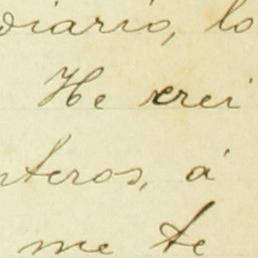 diario, lo
He crei
nteros, á
me te